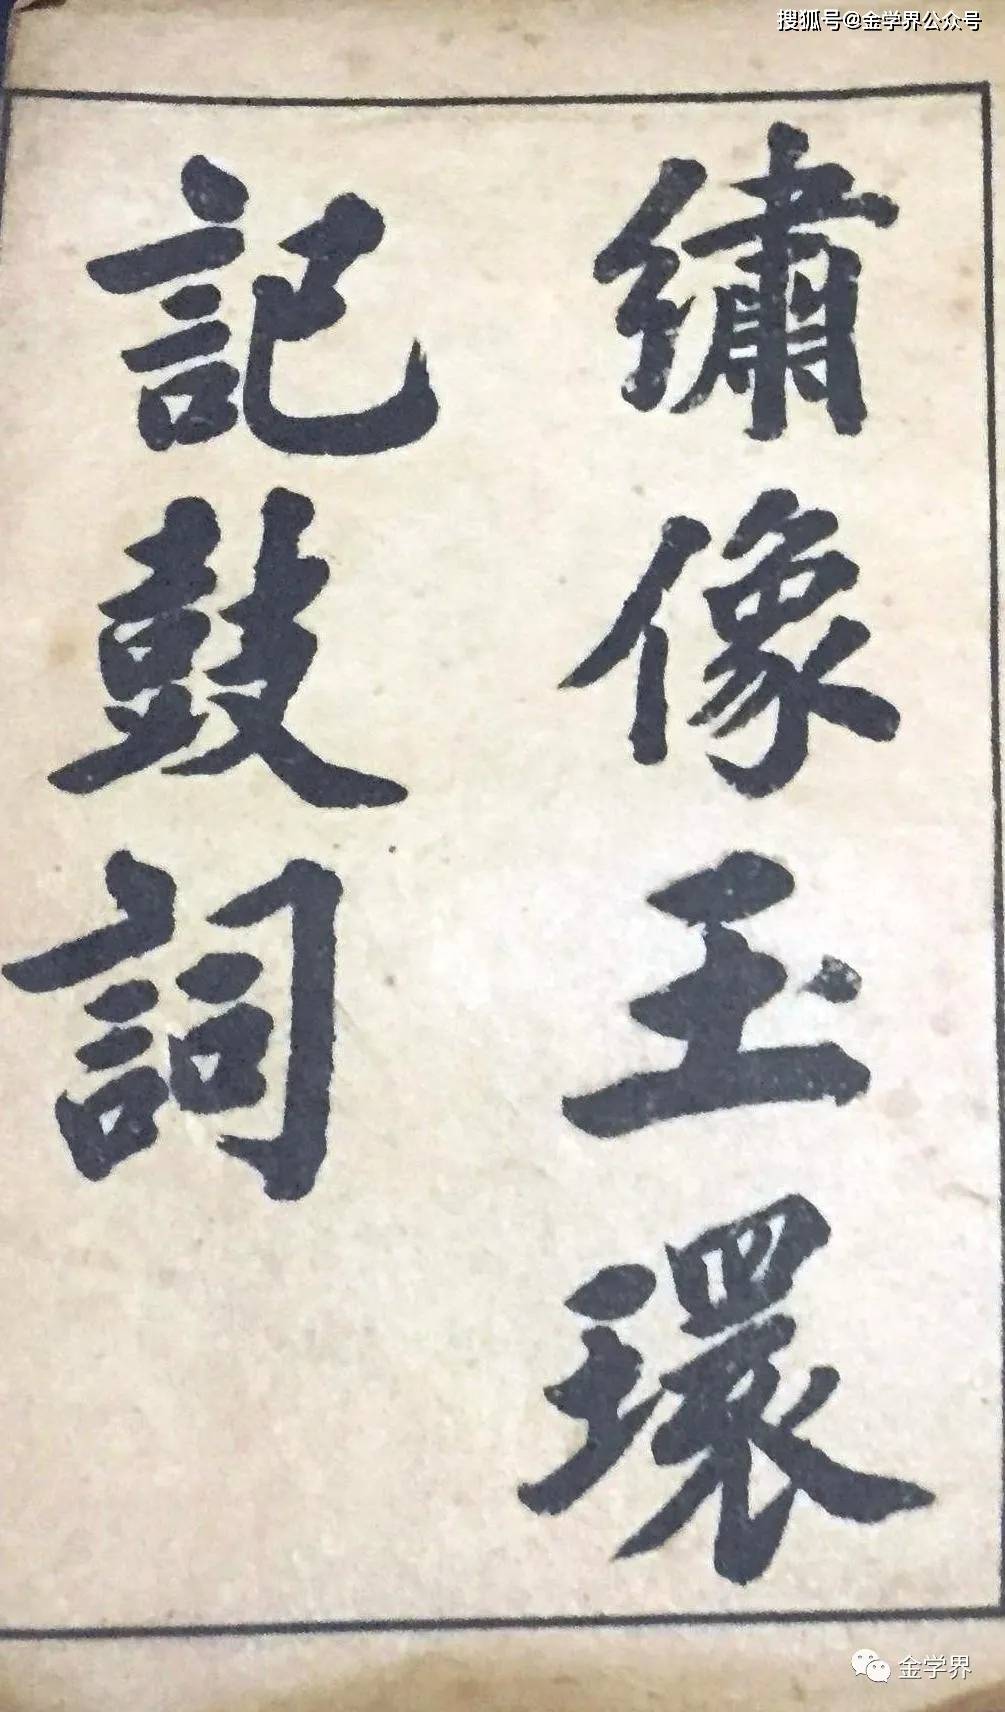 搜狐号@金学界公众号
繡像玉環
記鼓詞
金学界